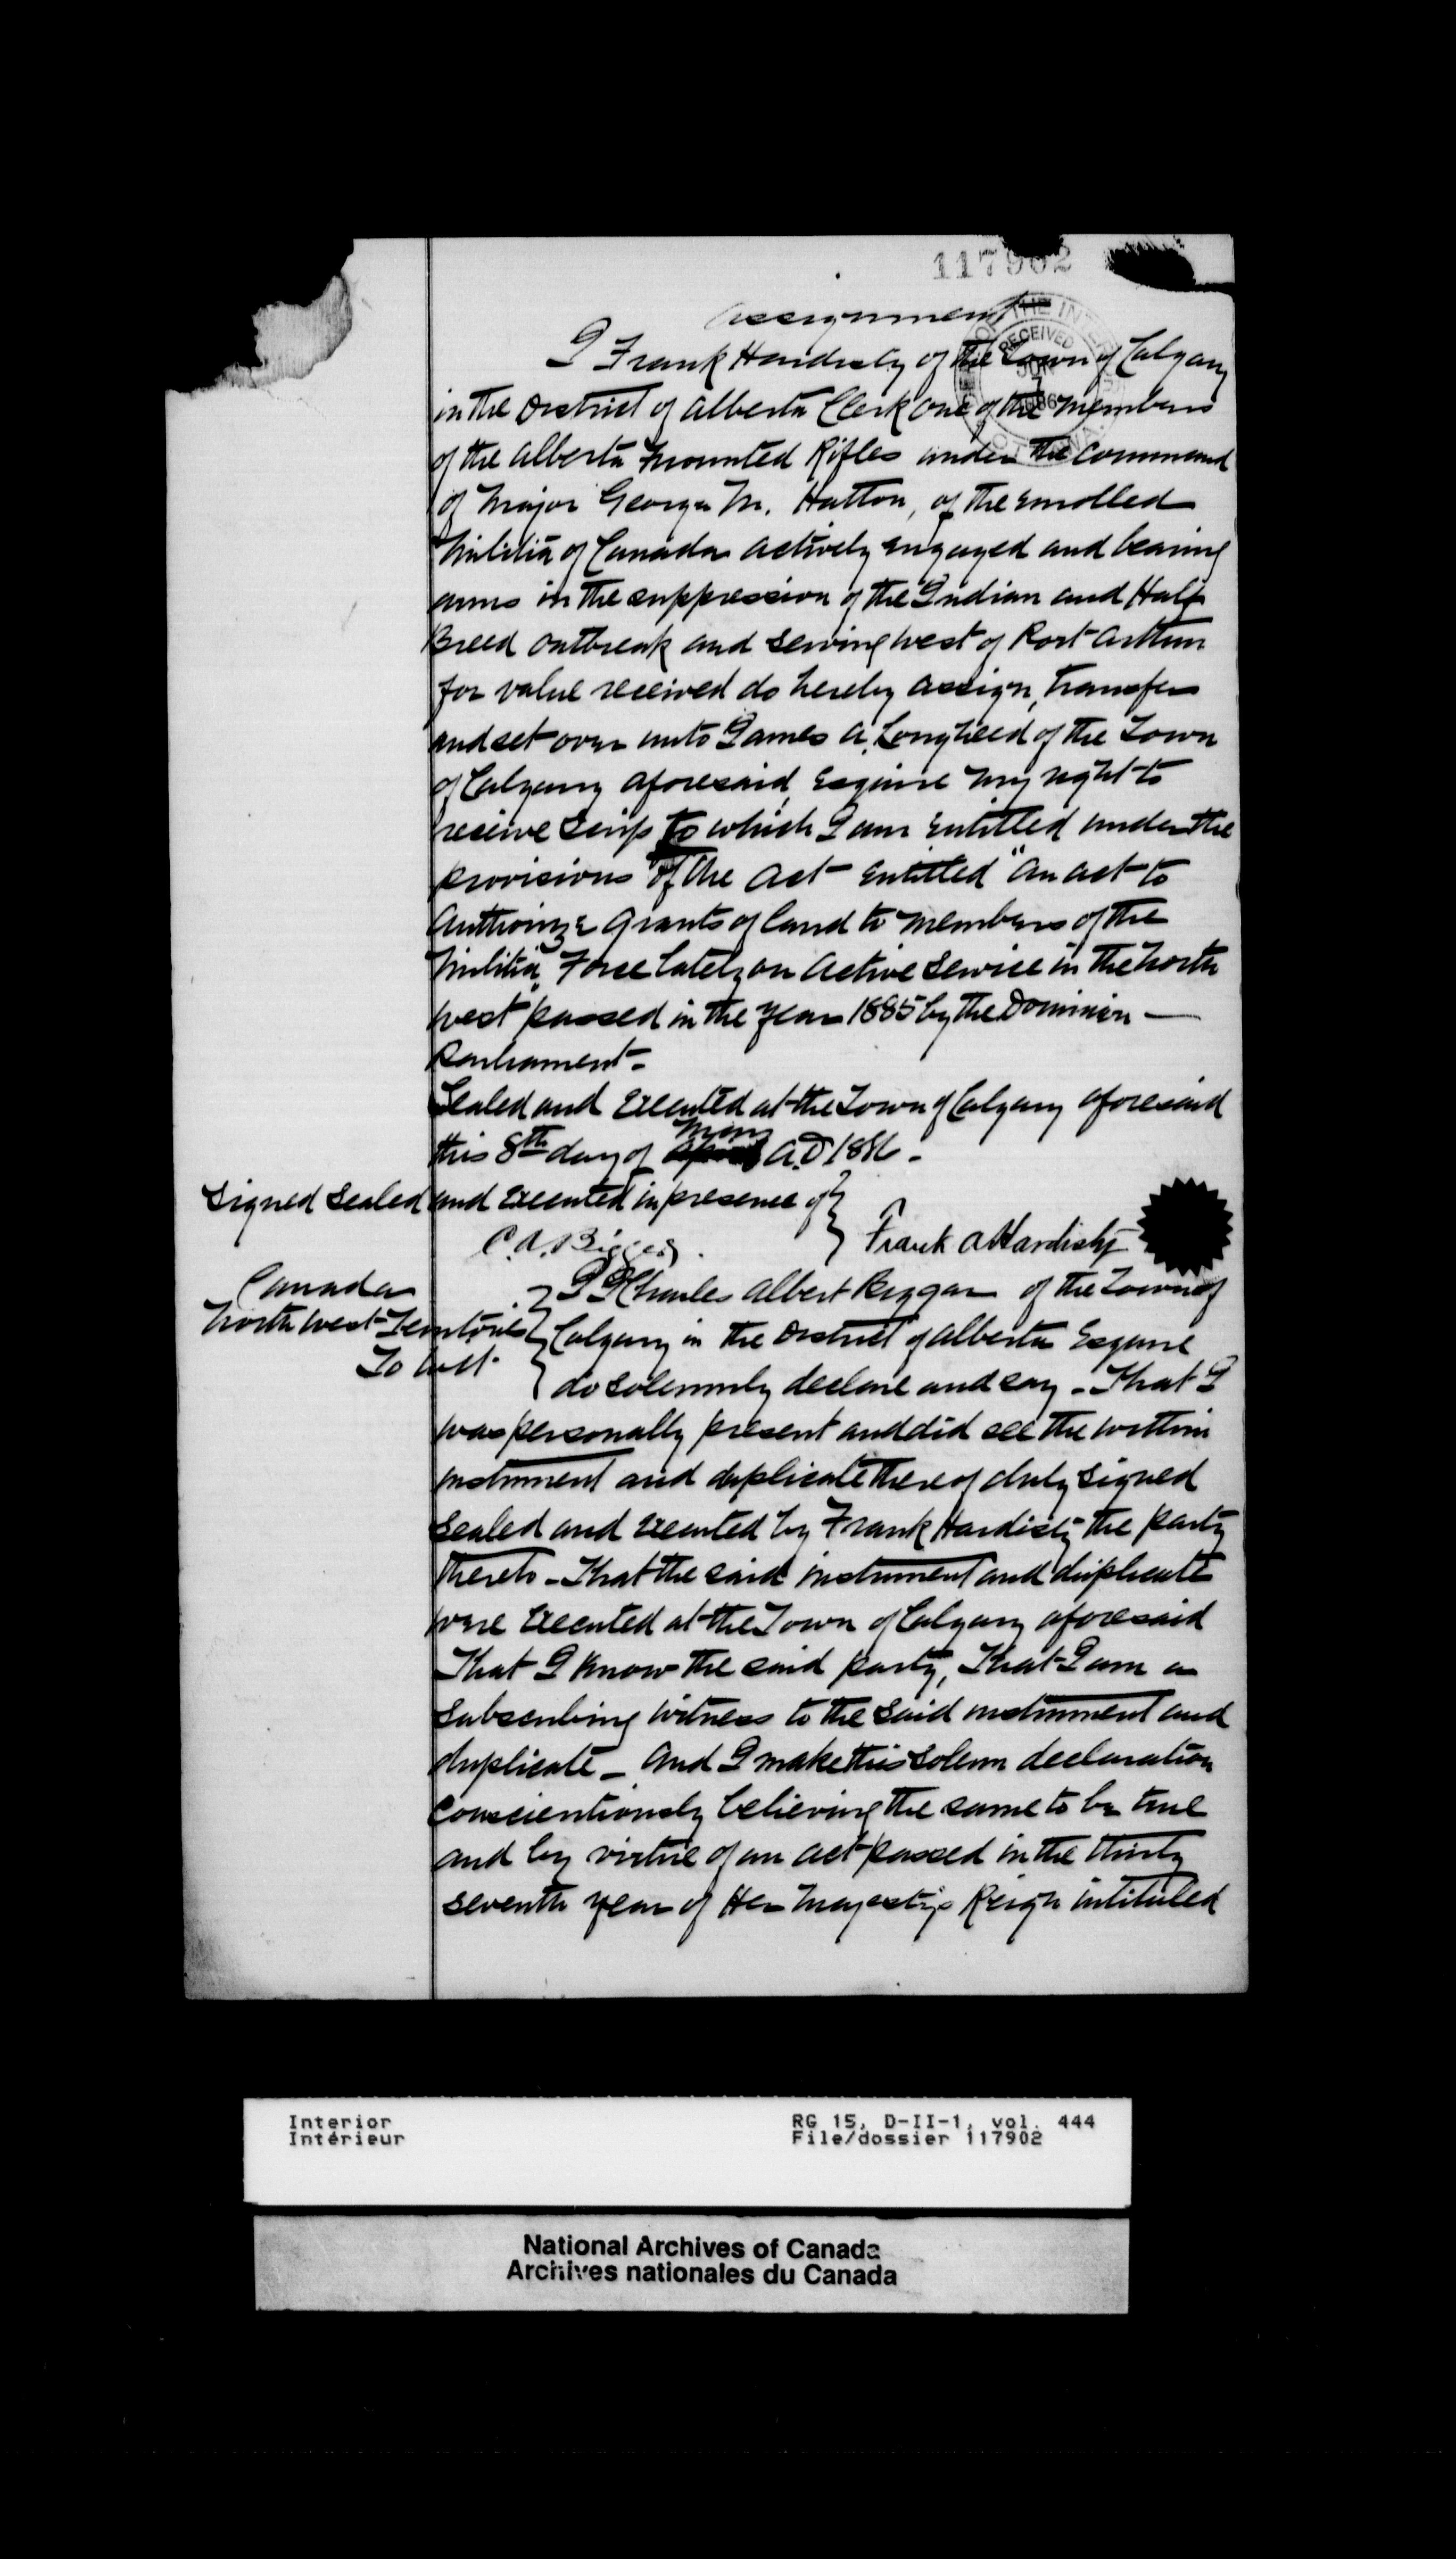 117902
Assignment
DEPT. OF THE INTERIOR RECEIVED JUN 7 1886 OTTAWA
I Frank Hardisty of the Town of Calgary
in the District of Alberta Clerk one of the members
of the Alberta Mounted Rifles under the command
of Major George M. Hatton, of the enrolled
Militia of Canada actively engaged and bearing
arms in the suppression of the Indian and Half
Breed outbreak and serving west of Port Arthur
for value received do hereby assign, transfer
and set over unto James A. Lougheed of the Town
of Calgary aforesaid, Esquire my right to
receive Scrip to which I am entitled under the
provisions of the Act entitled "An act to
Authorize Grants of land to members of the
Militia Force lately on Active Service in the North
West" passed in the year 1885 by the Dominion —
Parliament.
Sealed and Executed at the Town of Calgary aforesaid
this 8th day of May A.D 1886.
Signed Sealed and Executed in presence of }
C. A. Biggar. } Frank A Hardisty
Canada
North West Territories
To Wit.
I Charles Albert Biggar of the Town of
Calgary in the District of Alberta Esquire
do solemnly declare and say - That I
was personally present and did see the within
instrument and duplicate thereof duly signed
sealed and executed by Frank Hardisty the party
thereto - That the said instrument and duplicate
were executed at the Town of Calgary aforesaid
That I know the said party, That I am a
subscribing witness to the said instrument and
duplicate - And I make this solemn declaration
conscientiously believing the same to be true
and by virtue of an act passed in the thirty
seventh year of Her Majesty's Reign intituled
Interior
Intérieur
RG 15, D-II-1, vol. 444
File/dossier 117902
National Archives of Canada
Archives nationales du Canada